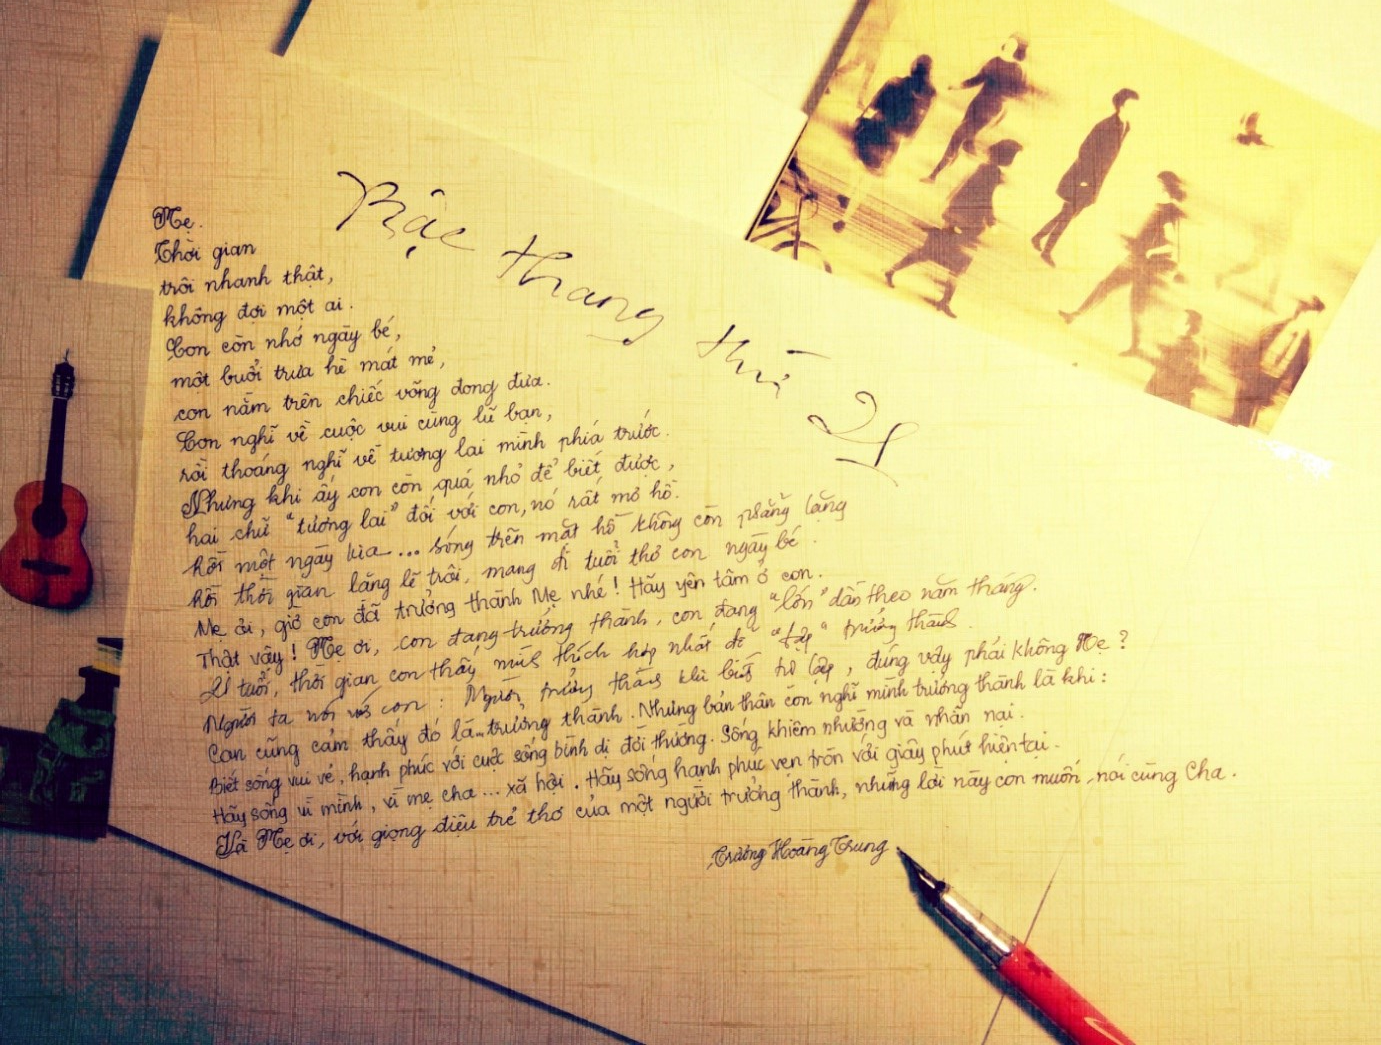 Bậc thang thứ 21
Mẹ.
Thời gian
trôi nhanh thật,
không đợi một ai.
Con còn nhớ ngày bé,
một buổi trưa hè mát mẻ,
con nằm trên chiếc võng đong đưa.
Con nghĩ về cuộc vui cùng lũ bạn,
rồi thoáng nghĩ về tương lai mình phía trước.
Nhưng khi ấy con còn quá nhỏ để biết được,
hai chữ "tương lai" đối với con, nó rất mơ hồ.
hồi một ngày kia... sóng trên mặt hồ không còn phẳng lặng
hồi thời gian lặng lẽ trôi, mang đi tuổi thơ con ngày bé.
Mẹ ơi, giờ con đã trưởng thành Mẹ nhé! Hãy yên tâm ở con.
Thật vậy! Mẹ ơi, con đang trưởng thành, con đang "lớn" dần theo năm tháng.
21 tuổi, thời gian con thấy mình thích hợp nhất để "tập" trưởng thành.
Người ta nói với con: Người trưởng thành khi biết tự lập, đúng vậy phải không Mẹ?
Con cũng cảm thấy đó là... trưởng thành. Nhưng bản thân con nghĩ mình trưởng thành là khi:
Biết sống vui vẻ, hạnh phúc với cuộc sống bình dị đời thường. Sống khiêm nhường và nhẫn nại.
Hãy sống vì mình, vì mẹ cha... xã hội. Hãy sống hạnh phúc vẹn tròn với giây phút hiện tại.
Và Mẹ ơi, với giọng điệu trẻ thơ của một người trưởng thành, những lời này con muốn nói cùng Cha.
Trương Hoàng Trung